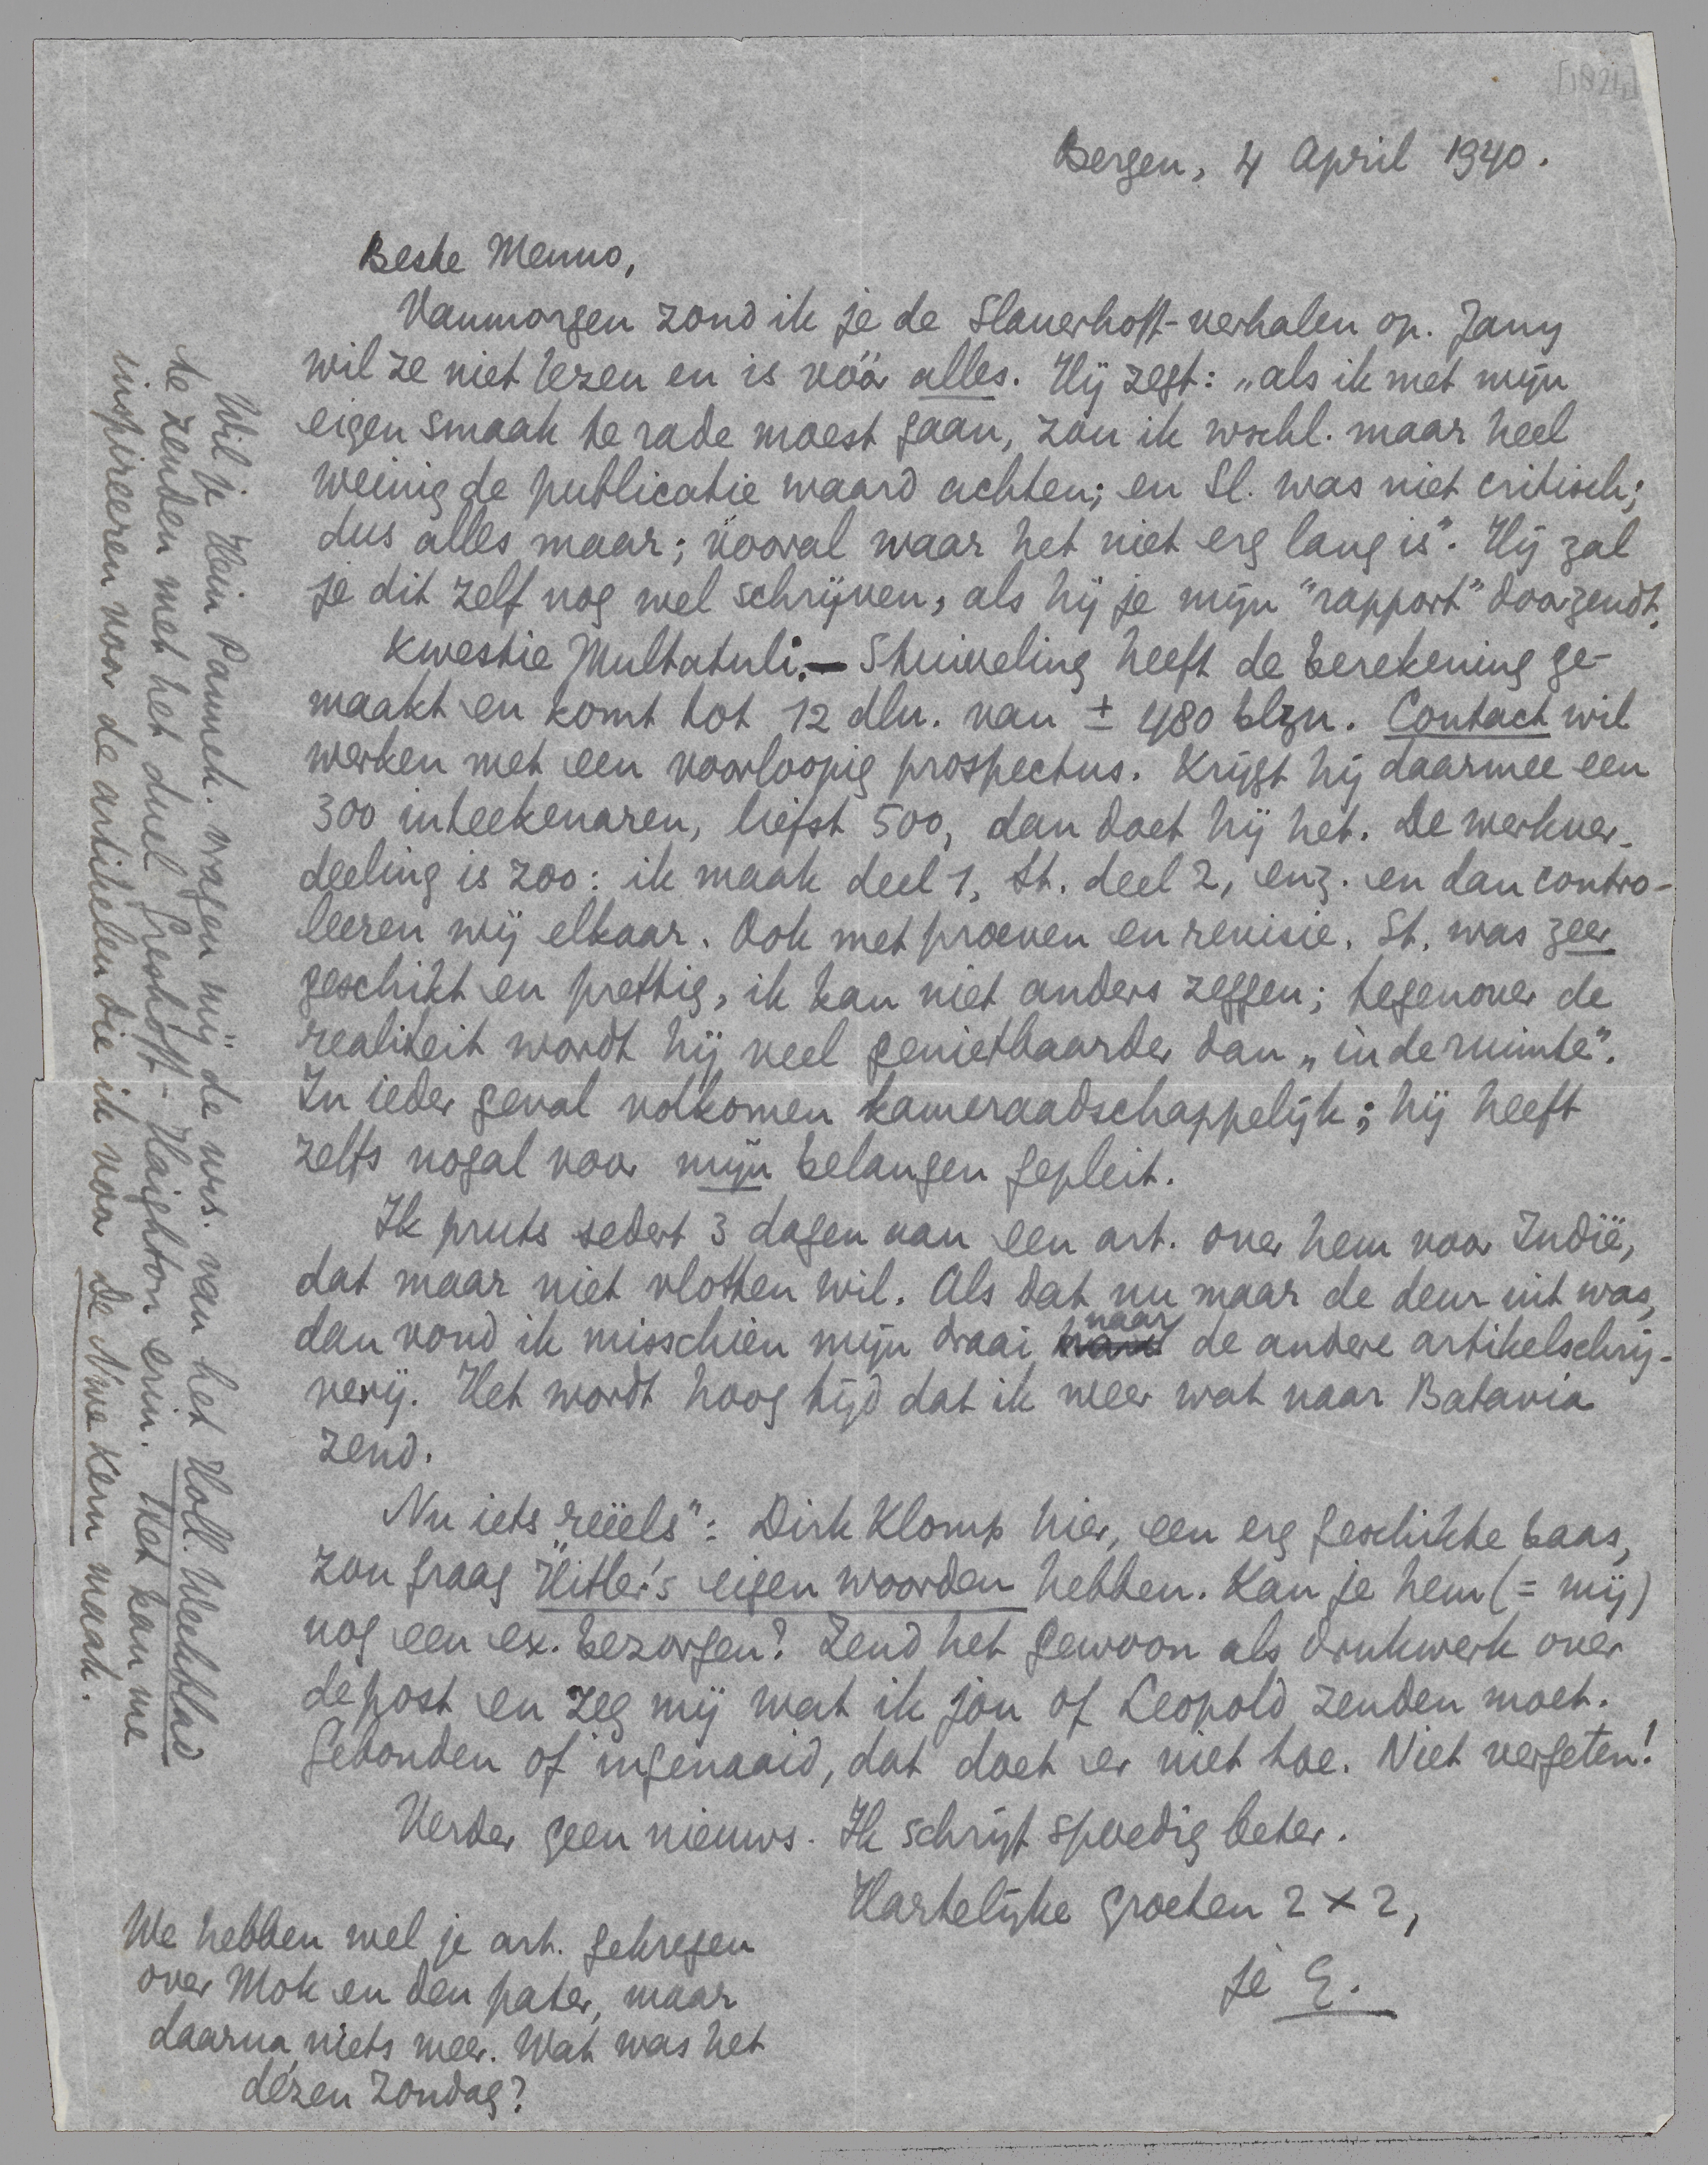 Bergen, 4 April 1940.
Beste Menno,
Vanmorgen zond ik je de Slauerhoff-verhalen op. Jany
wil ze niet lezen en is vóór alles. Hij zegt: „als ik met mijn
eigen smaak te rade moest gaan, zou ik wschl. maar heel
weinig de publicatie waard achten; en Sl. was niet critisch;
dus alles maar; vooral waar het niet erg lang is”. Hij zal
je dit zelf nog wel schrijven, als hij je mijn "rapport" doorzendt.
Kwestie Multatuli. — Stuiveling heeft de berekening ge-
maakt en komt tot 12 dln. van ± 480 blzn. Contact wil
werken met een voorloopig prospectus. Krijgt hij daarmee een
300 inteekenaren, liefst 500, dan doet hij het. De werkver-
deeling is zoo: ik maak deel 1, St. deel 2, enz. en dan contro-
leeren wij elkaar. Ook met proeven en revisie. St. was zeer
geschikt en prettig, ik kan niet anders zeggen; tegenover de
realiteit wordt hij veel genietbaarder dan „in de ruimte”.
In ieder geval volkomen kameraadschappelijk; hij heeft
zelfs nogal voor mijn belangen gepleit.
Ik pruts sedert 3 dagen aan een art. over hem voor Indië,
dat maar niet vlotten wil. Als dat nu maar de deur uit was,
dan vond ik misschien mijn draai naar de andere artikelschrij-
verij. Het wordt hoog tijd dat ik weer wat naar Batavia
zend.
Nu iets „reëels”: Dirk Klomp hier, een erg geschikte baas,
zou graag Hitler's eigen woorden hebben. Kan je hem (= mij)
nog een ex. bezorgen? Zend het gewoon als drukwerk over
de post en zeg mij wat ik jou of Leopold zenden moet.
Gebonden of ingenaaid, dat doet er niet toe. Niet vergeten!
Verder geen nieuws. Ik schrijf spoedig beter.
Hartelijke groeten 2 x 2,
je E.
We hebben wel je art. gekregen
over Mok en den pater, maar
daarna niets meer. Wat was het
dézen Zondag?
Wil je Hein Pannek. vragen mij de nrs. van het Holl. Weekblad
te zenden met het duel Greshoff-Haighton erin. Het kan me
inspireeren voor de artikelen die ik voor De Nwe Kern maak.